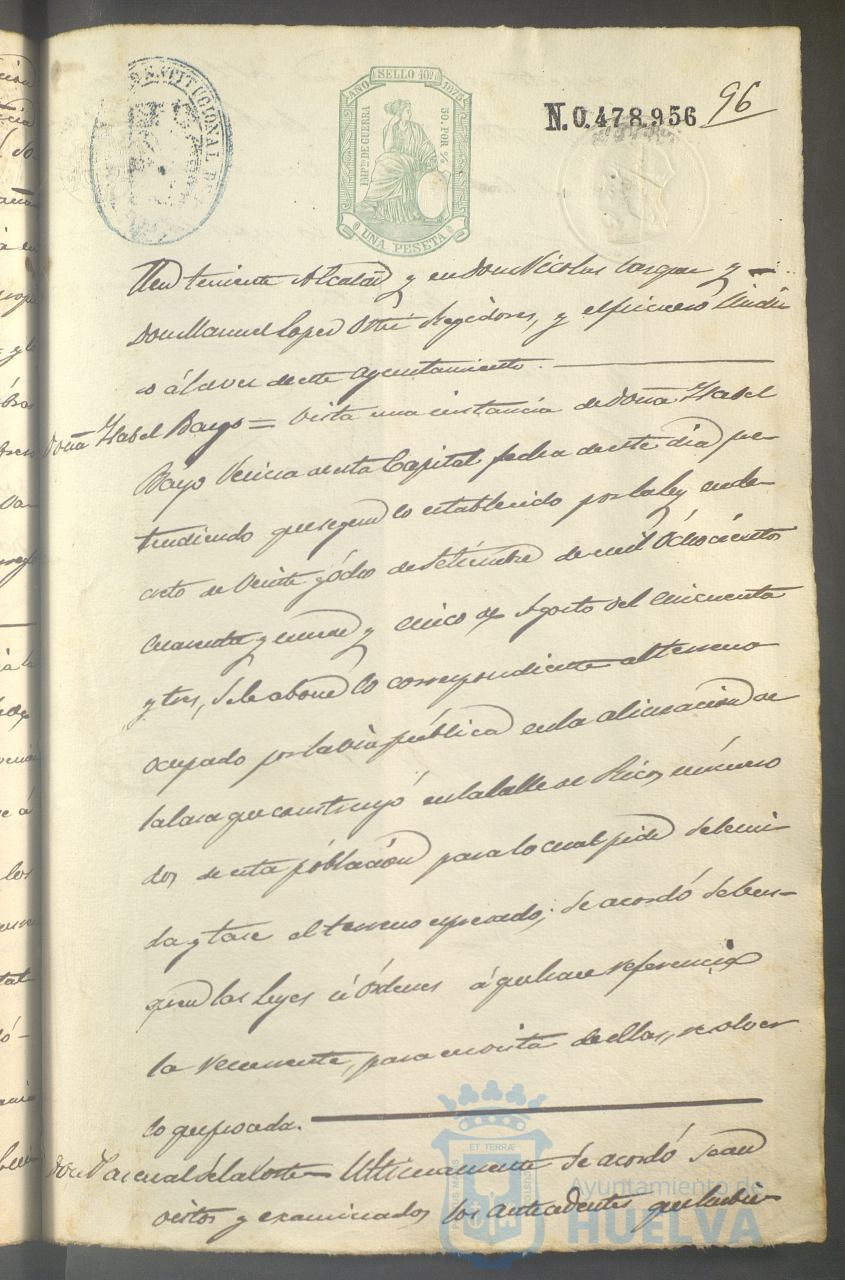 AÑO SELLO 10º 1875
IMPTO DE GUERRA
50. POR %
UNA PESETA
N.0.478.956
96
teniente Alcalde y en Don Nicolas Vazquez y
Don Manuel Lopez regidores, y el primero Sindi
co á la vez de este Ayuntamiento.
Doña Ysabel Bayo = Vista una instancia de Doña Ysabel
Bayo Vecina de esta Capital fecha de este dia pre-
tendiendo que segun lo establecido por la ley
de Veinte y ocho de Setiembre de mil Ochocientos
Cuarenta y nueve y cinco de Agosto del cincuenta
y tres, se le abone lo correspondiente al terreno
ocupado por la via pública en la alineacion de
la casa que construyó en la calle de Ricos número
dos de esta población para lo cual pide se le mi-
da y tase el terreno espresado; Se acordó se bus-
quen las Leyes ú órdenes á que hace referencia
la recurrente, para en vista de ellas, resolver
lo que proceda.
Don Pascual de la Corte = Ultimamente Se acordó sean
vistos y examinados los antecedentes que hubie-
Ayuntamiento de
HUELVA